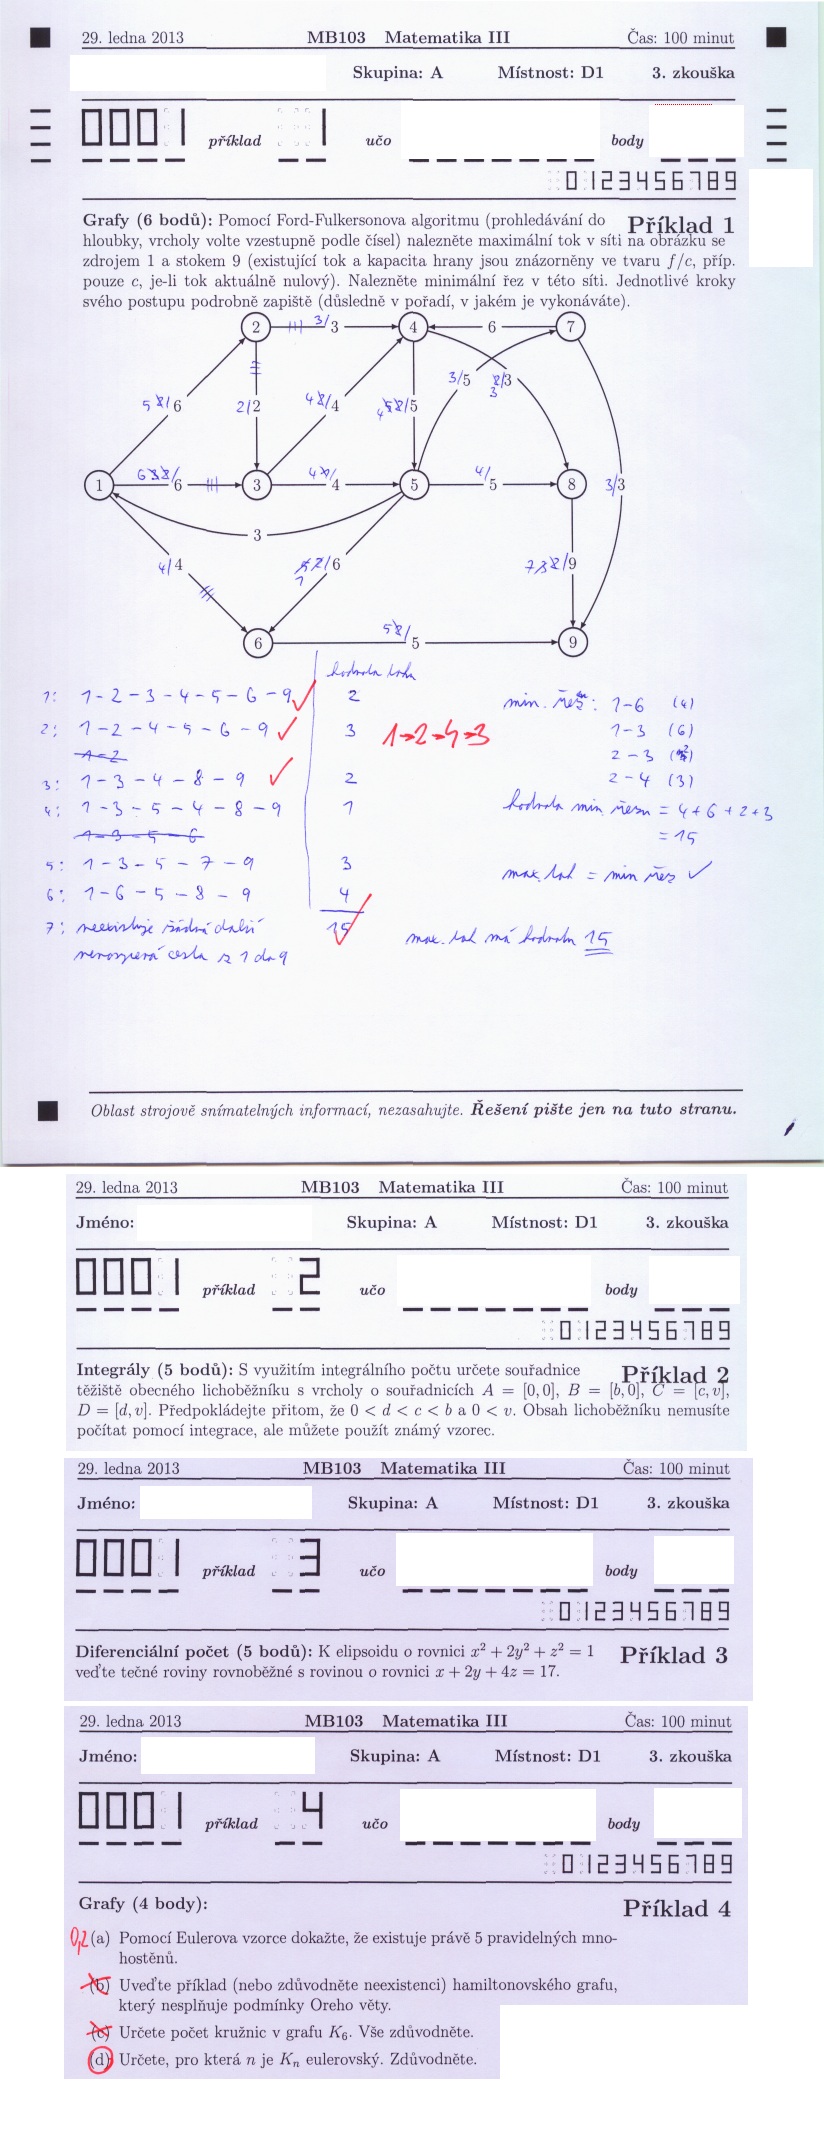 29. ledna 2013 MB103 Matematika III Čas: 100 minut
Skupina: A Místnost: D1 3. zkouška
0001 příklad 1 učo body
0123456789
Grafy (6 bodů): Pomocí Ford-Fulkersonova algoritmu (prohledávání do Příklad 1
hloubky, vrcholy volte vzestupně podle čísel) nalezněte maximální tok v síti na obrázku se
zdrojem 1 a stokem 9 (existující tok a kapacita hrany jsou znázorněny ve tvaru f/c, příp.
pouze c, je-li tok aktuálně nulový). Nalezněte minimální řez v této síti. Jednotlivé kroky
svého postupu podrobně zapište (důsledně v pořadí, v jakém je vykonáváte).
2 3/3 4 6 7
3/5 /3
5 /6 2/2 4 /4 4 /5
1 6 /6 3 4 /4 5 4/5 8 3/3
3
4/4 /6 7 /9
6 5 /5 9
hodnota toku
1: 1-2-3-4-5-6-9 2
min. řez: 1-6 (4)
2: 1-2-4-5-6-9 3 1→2→4→3
1-3 (6)
1-2
2-3
3: 1-3-4-8-9 2
2-4 (3)
4: 1-3-5-4-8-9 1
hodnota min řezu = 4+6+2+3
1-3-5-6
= 15
5: 1-3-5-7-9 3
max. tok = min řez ✓
6: 1-6-5-8-9 4
7: neexistuje žádná další 15
max. tok má hodnotu 15
nenasycená cesta z 1 do 9
Oblast strojově snímatelných informací, nezasahujte. Řešení pište jen na tuto stranu.
29. ledna 2013 MB103 Matematika III Čas: 100 minut
Jméno: Skupina: A Místnost: D1 3. zkouška
0001 příklad 2 učo body
0123456789
Integrály (5 bodů): S využitím integrálního počtu určete souřadnice Příklad 2
těžiště obecného lichoběžníku s vrcholy o souřadnicích A = [0,0], B = [b,0], C = [c,v],
D = [d,v]. Předpokládejte přitom, že 0 < d < c < b a 0 < v. Obsah lichoběžníku nemusíte
počítat pomocí integrace, ale můžete použít známý vzorec.
29. ledna 2013 MB103 Matematika III Čas: 100 minut
Jméno: Skupina: A Místnost: D1 3. zkouška
0001 příklad 3 učo body
0123456789
Diferenciální počet (5 bodů): K elipsoidu o rovnici x² + 2y² + z² = 1 Příklad 3
veďte tečné roviny rovnoběžné s rovinou o rovnici x + 2y + 4z = 17.
29. ledna 2013 MB103 Matematika III Čas: 100 minut
Jméno: Skupina: A Místnost: D1 3. zkouška
0001 příklad 4 učo body
0123456789
Grafy (4 body): Příklad 4
0,2 (a) Pomocí Eulerova vzorce dokažte, že existuje právě 5 pravidelných mno-
hostěnů.
(b) Uveďte příklad (nebo zdůvodněte neexistenci) hamiltonovského grafu,
který nesplňuje podmínky Oreho věty.
(c) Určete počet kružnic v grafu K₆. Vše zdůvodněte.
(d) Určete, pro která n je Kₙ eulerovský. Zdůvodněte.